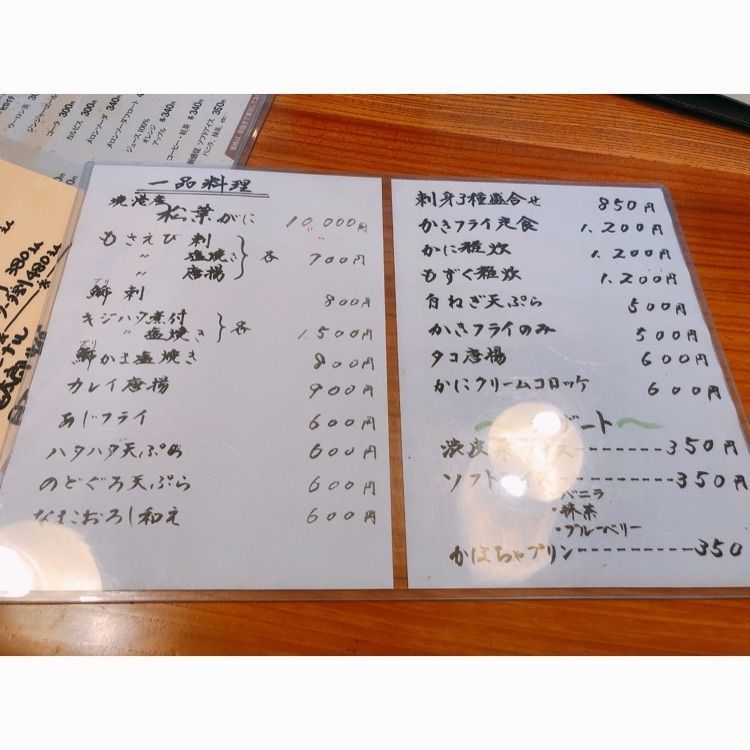 一品料理
境港産
松葉がに 10,000円
もさえび 刺
〃 塩焼き 各 700円
〃 唐揚
ブリ
鰤 刺 800円
キジハタ煮付
〃 塩焼き 各 1,500円
ブリ
鰤かま塩焼き 800円
カレイ唐揚 900円
あじフライ 600円
ハタハタ天ぷら 600円
のどぐろ天ぷら 600円
なまこおろし和え 600円
刺身3種盛合せ 850円
かきフライ定食 1,200円
かに雑炊 1,200円
もずく雑炊 1,200円
白ねぎ天ぷら 500円
かきフライのみ 500円
タコ唐揚 600円
かにクリームコロッケ 600円
ート〜
350円
ソフト 350円
・バニラ
・抹茶
・ブルーベリー
かぼちゃプリン 350
ウーロン茶
ジンジャーエール
コーラ 300円
カルピス 300円
メロンソーダ 340円
メロンソーダフロート
ジュース100%
オレンジ
アップル 各340円
コーヒー・紅茶 各340円
ソフトアイス 350円
バニラ、抹茶、